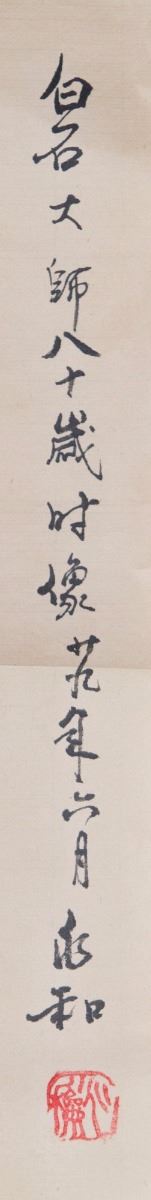 白石大師八十歲时像廿九年六月兆和